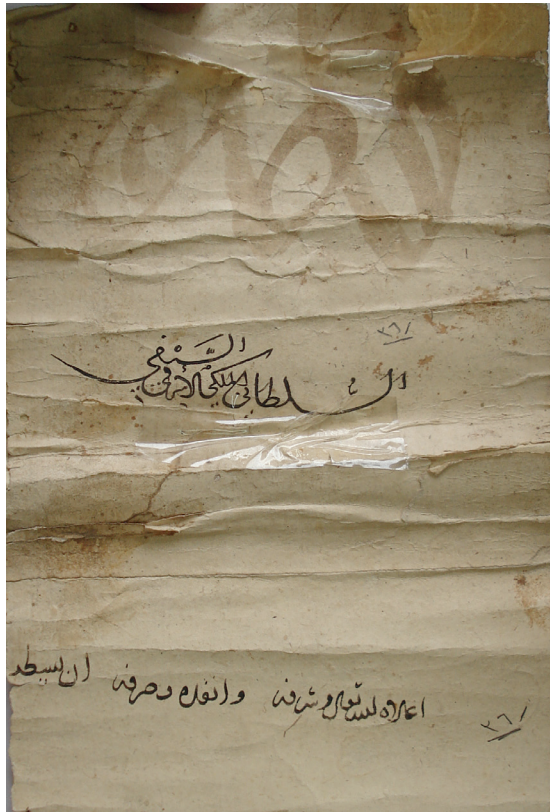 ٣٦١
السلطاني الملكي الأشرفي السيفي
اعلاه الله تعالى وشرفه وانفذه وصرفه ان يسطر
٣٦١